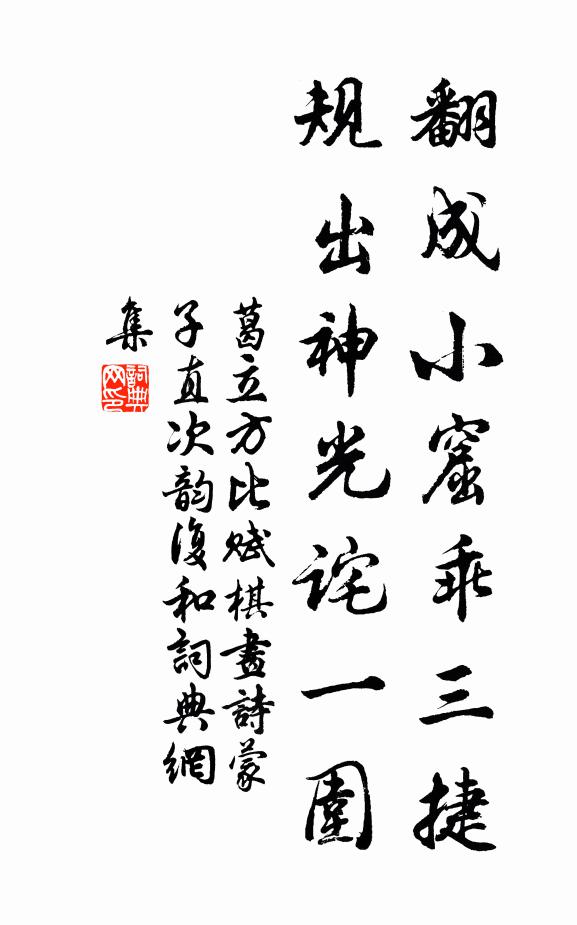 翻成小窟乘三捷
規出神光詫一圍
葛立方比賦棋畫詩蒙
子直次韵復和詞典網
集
詞典
网印